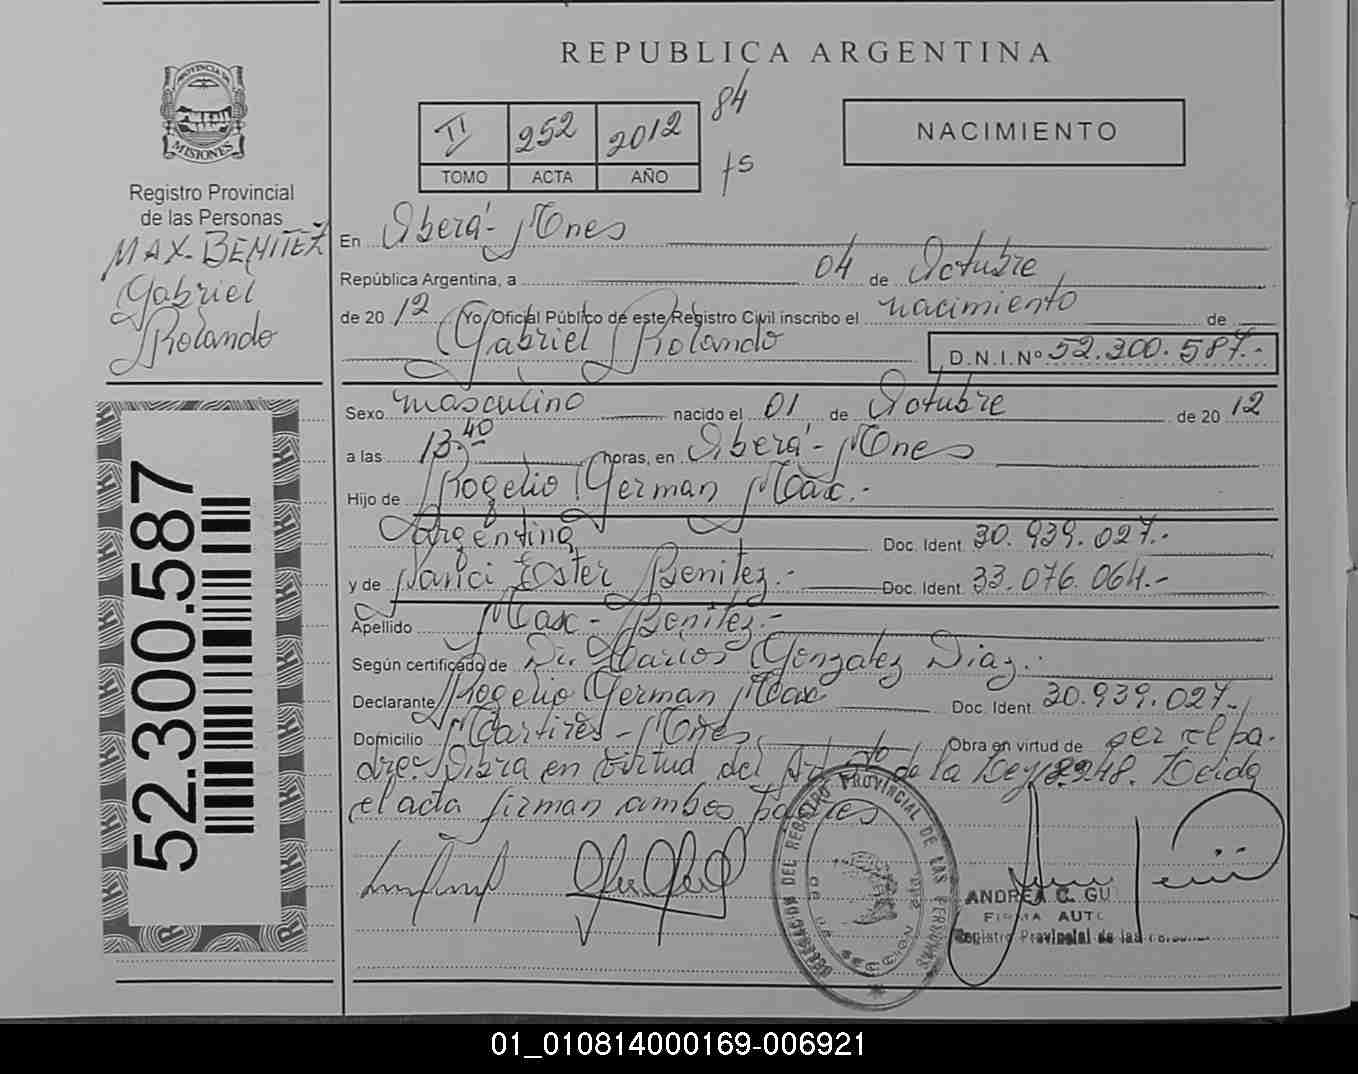 REPUBLICA ARGENTINA
PROVINCIA DE
MISIONES
Registro Provincial
de las Personas
MAX-BENITEZ
Gabriel
Rolando
52.300.587
II 252 2012 84
TOMO ACTA AÑO fs
NACIMIENTO
En Oberá - Mnes
República Argentina, a 04 de Octubre
de 20 12 Yo, Oficial Público de este Registro Civil inscribo el nacimiento de
Gabriel Rolando D.N.I.Nº 52.300.587.-
Sexo masculino nacido el 01 de Octubre de 20 12
a las 13.40 horas, en Oberá - Mnes
Hijo de Rogelio German Max.-
Argentina Doc. Ident. 30.939.027.-
y de Nanci Ester Benitez.- Doc. Ident. 33.076.064.-
Apellido Max - Benitez.-
Según certificado de Dr. Marcos Gonzalez Diaz.-
Declarante Rogelio German Max Doc. Ident. 30.939.027.-
Domicilio Martires - Mnes Obra en virtud de ser el pa-
dre.- Obra en virtud del Art de la Ley 18248. Leida
el acta firman ambos padres
DELEGACION DEL REGISTRO PROVINCIAL DE LAS PERSONAS
ANDREA C. GU
FIRMA AUT
Registro Provincial de las Personas
01_010814000169-006921